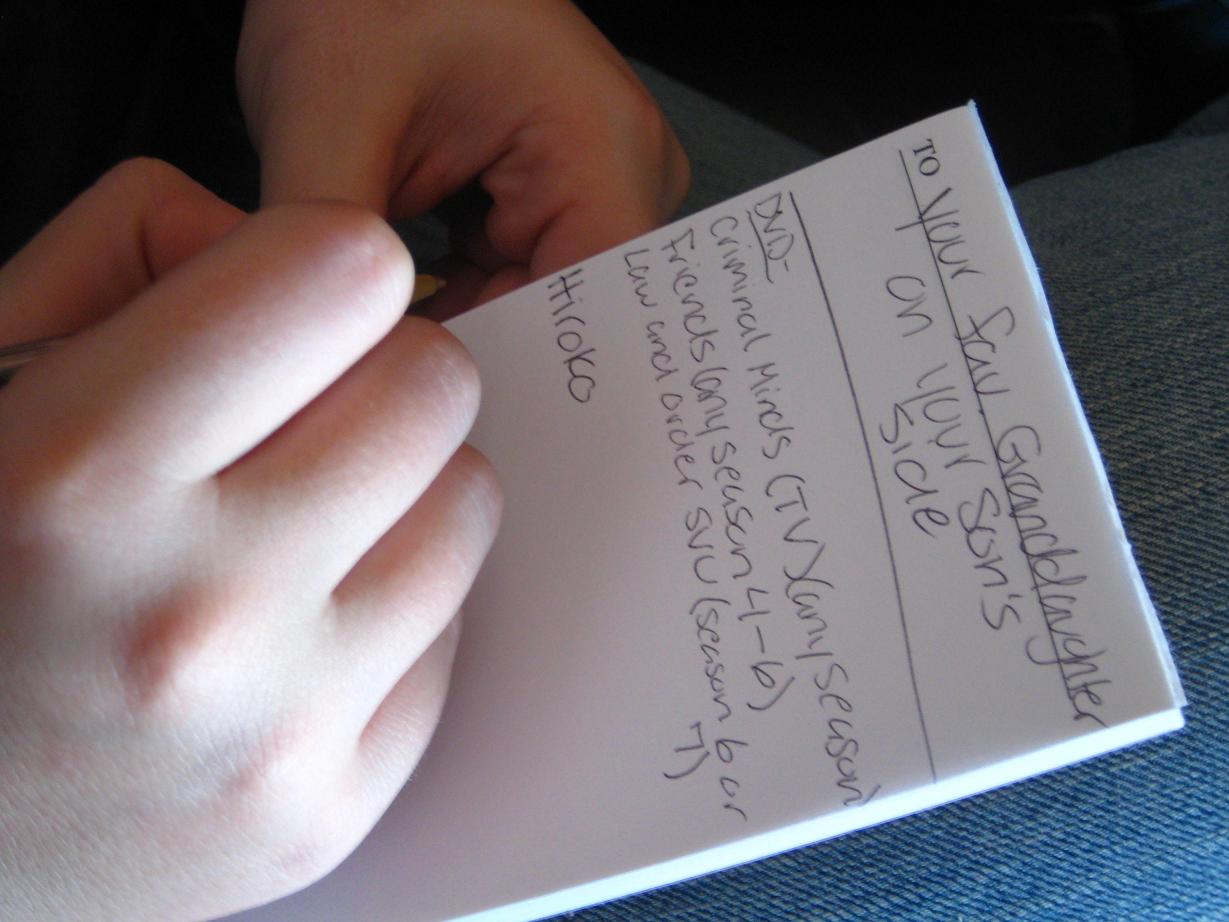 TO your fav. Granddaughter
on your son's
side
DVD-
Criminal Minds (TV)(any season)
Friends (any season 4-6)
Law and order SVU (season 6 or
7)
Hiroko